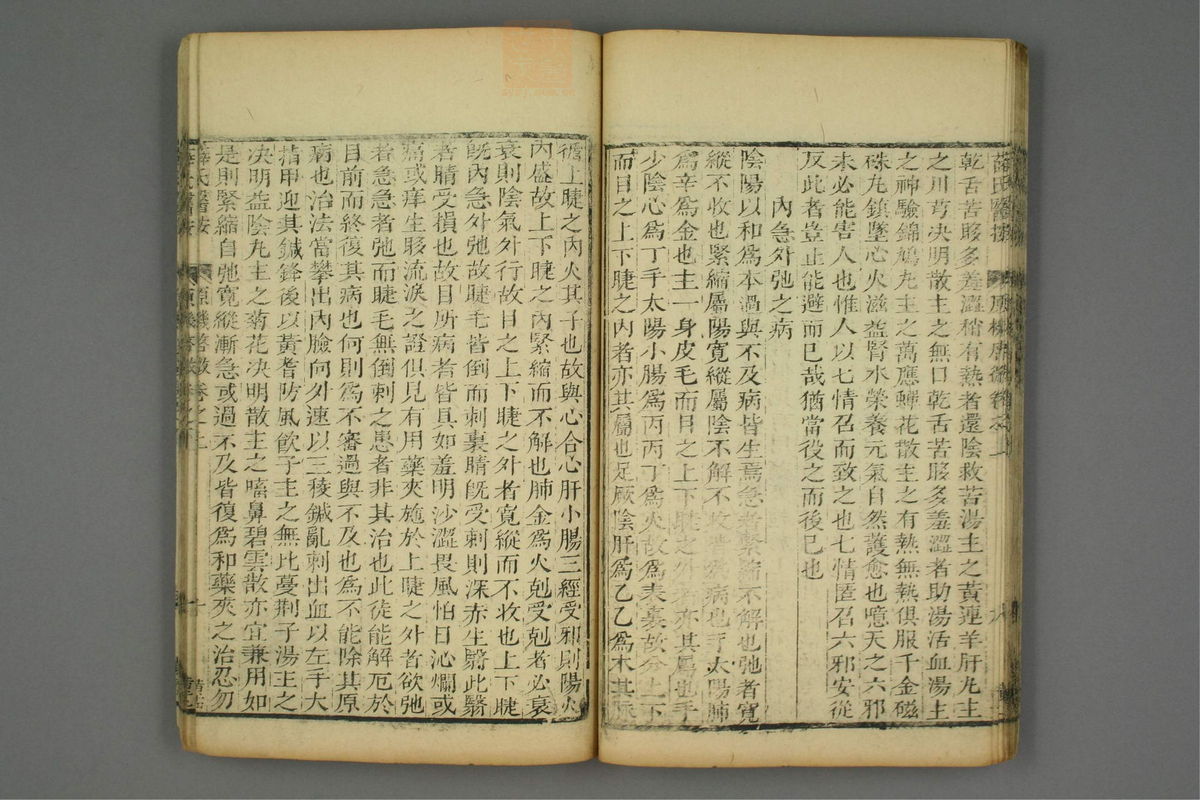 薛氏醫按
乾舌苦眵多羞澀稍有熱者還陰救苦湯主之黃連羊肝丸主
之川芎决明散主之無口乾舌苦眵多羞澀者助湯活血湯主
之神驗錦鳩丸主之萬應蟬花散主之有熱無熱俱服千金磁
硃丸鎮墜心火滋益腎水榮養元氣自然護愈也噫天之六邪
未必能害人也惟人以七情召而致之也七情匿召六邪安從
反此者豈止能避而已哉猶當役之而後已也
內急外弛之病
陰陽以和爲本過與不及病皆生焉急者緊縮不解也弛者寬
縱不收也緊縮屬陽寬縱屬陰不解不收皆爲病也手太陽肺
爲辛爲金也主一身皮毛而目之上下睫之外者亦其屬也手
少陰心爲丁手太陽小腸爲丙丙丁爲火故爲表裏故分上下
而目之上下睫之内者亦其屬也足厥陰肝爲乙乙爲木其脈
循上睫之內火其子也故與心合心肝小腸三經受邪則陽火
內盛故上下睫之內緊縮而不解也肺金爲火剋受剋者必衰
衰則陰氣外行故目之上下睫之外者寬縱而不收也上下睫
既內急外弛故睫毛皆倒而刺裏睛既受刺則深赤生翳此翳
者睛受損也故目所病者皆具如羞明沙澀畏風怕日沁爛或
痛或痒生眵流淚之證俱見有用藥夾施於上睫之外者欲弛
者急急者弛而睫毛無倒刺之患者非其治也此徒能解厄於
目前而終復其病也何則爲不審過與不及也爲不能除其原
病也治法當攀出內臉向外速以三稜鍼亂刺出血以左手大
指甲迎其鍼鋒後以黃耆防風飲子主之無比蔓荆子湯主之
决明益陰丸主之菊花决明散主之㗜鼻碧雲散亦宜兼用如
是則緊縮自弛寬縱漸急或過不及皆復爲和藥夾之治忍勿
薛氏醫按 原機啓微卷之上